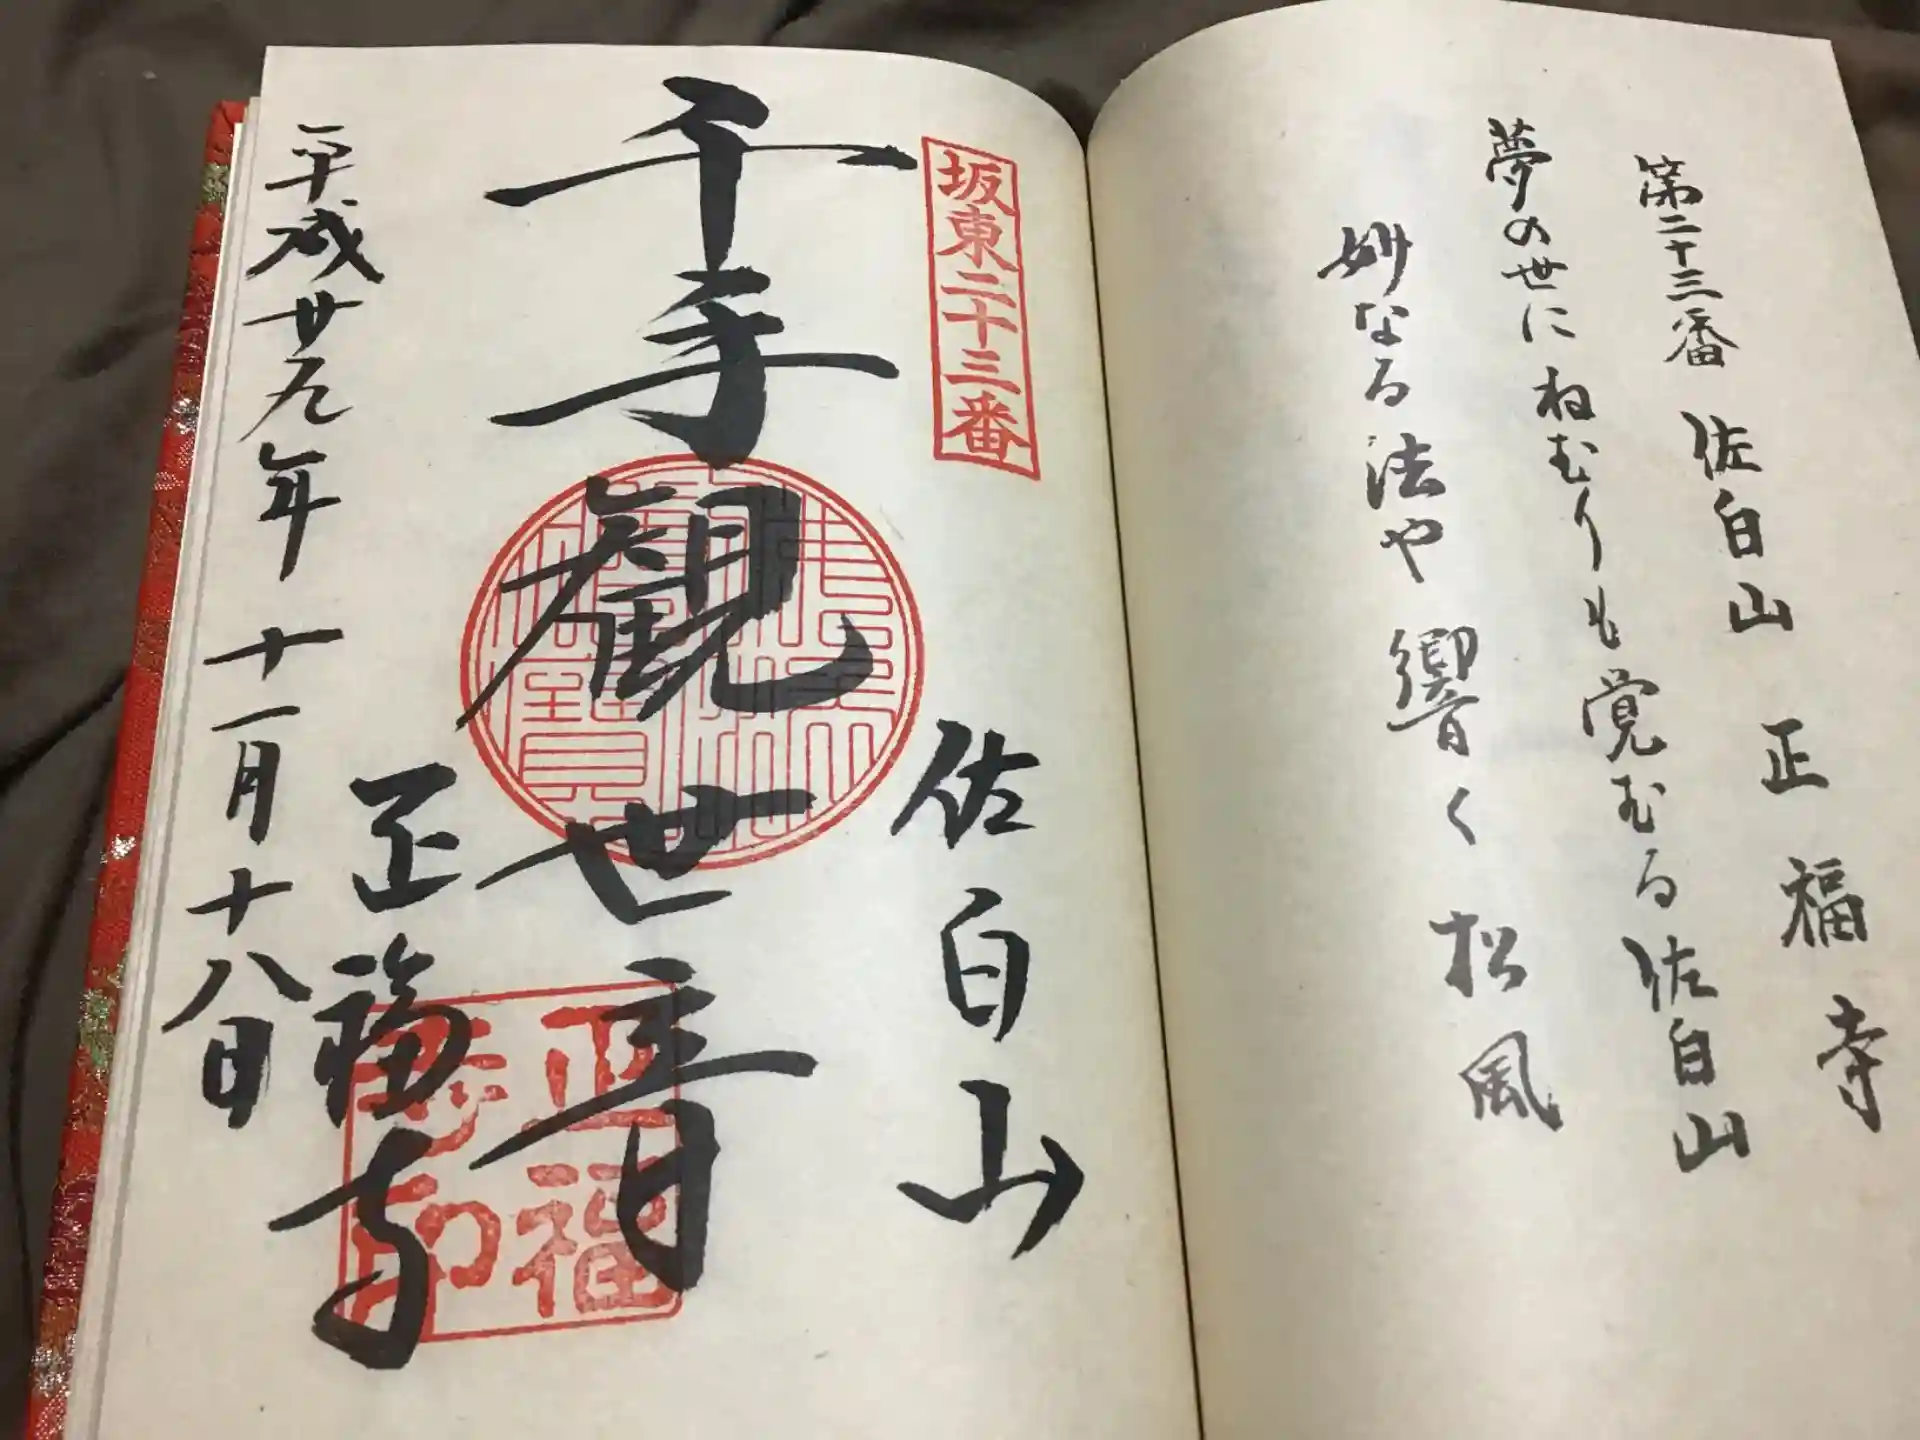 第二十三番 佐白山 正福寺
夢の世にねむりも覚むる佐白山
妙なる法や響く松風
坂東二十三番
佐白山
千手観世音
正福寺
正福寺印
平成廿九年十一月十八日